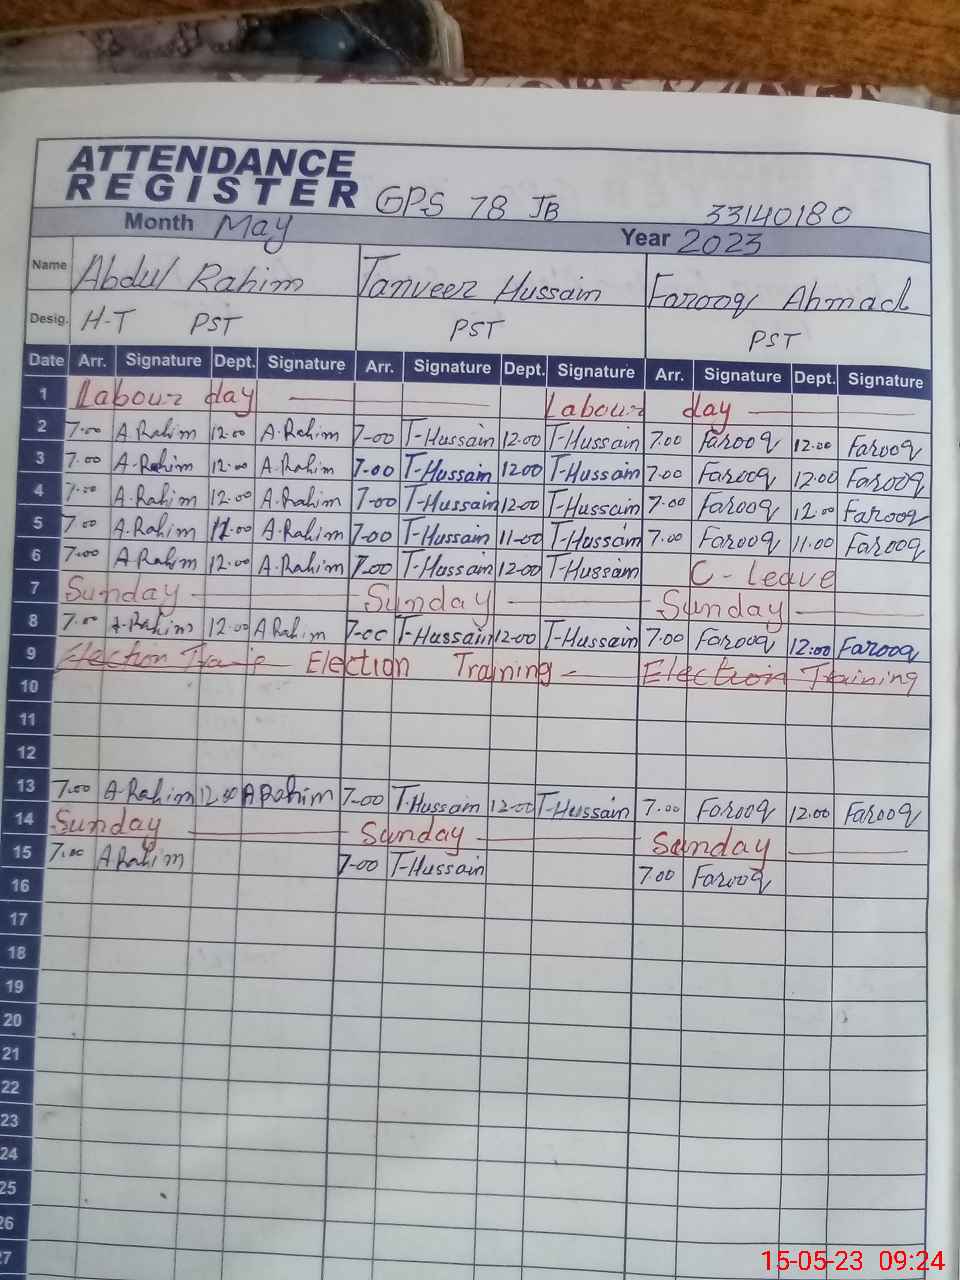 ATTENDANCE
REGISTER GPS 78 JB 33140180
Month May Year 2023
Name Abdul Rahim Tanveer Hussain Farooq Ahmad
Desig. H-T PST PST PST
Date Arr. Signature Dept. Signature Arr. Signature Dept. Signature Arr. Signature Dept. Signature
1 Labour day Labour day
2 7.00 A Rahim 12.00 A.Rahim 7-00 T-Hussain 12.00 T-Hussain 7.00 Farooq 12.00 Farooq
3 7.00 A.Rahim 12.00 A.Rahim 7-00 T-Hussain 1200 T-Hussain 7.00 Farooq 12.00 Farooq
4 7.00 A.Rahim 12.00 A.Rahim 7-00 T-Hussain 12-00 T-Hussain 7.00 Farooq 12.00 Farooq
5 7.00 A.Rahim 11.00 A.Rahim 7-00 T-Hussain 11-00 T-Hussain 7.00 Farooq 11.00 Farooq
6 7.00 A.Rahim 12.00 A.Rahim 7.00 T-Hussain 12-00 T-Hussain C-Leave
7 Sunday Sunday Sunday
8 7.00 A-Rahim 12.00 A Rahim 7-00 T-Hussain 12-00 T-Hussain 7.00 Farooq 12:00 Farooq
9 Election Election Training Election Training
10
11
12
13 7.00 A.Rahim 12.00 A Rahim 7-00 T.Hussain 12-00 T-Hussain 7.00 Farooq 12.00 Farooq
14 Sunday Sunday Sunday
15 7.00 A Rahim 7-00 T-Hussain 7.00 Farooq
16
17
18
19
20
21
22
23
24
25
26
27
15-05-23 09:24